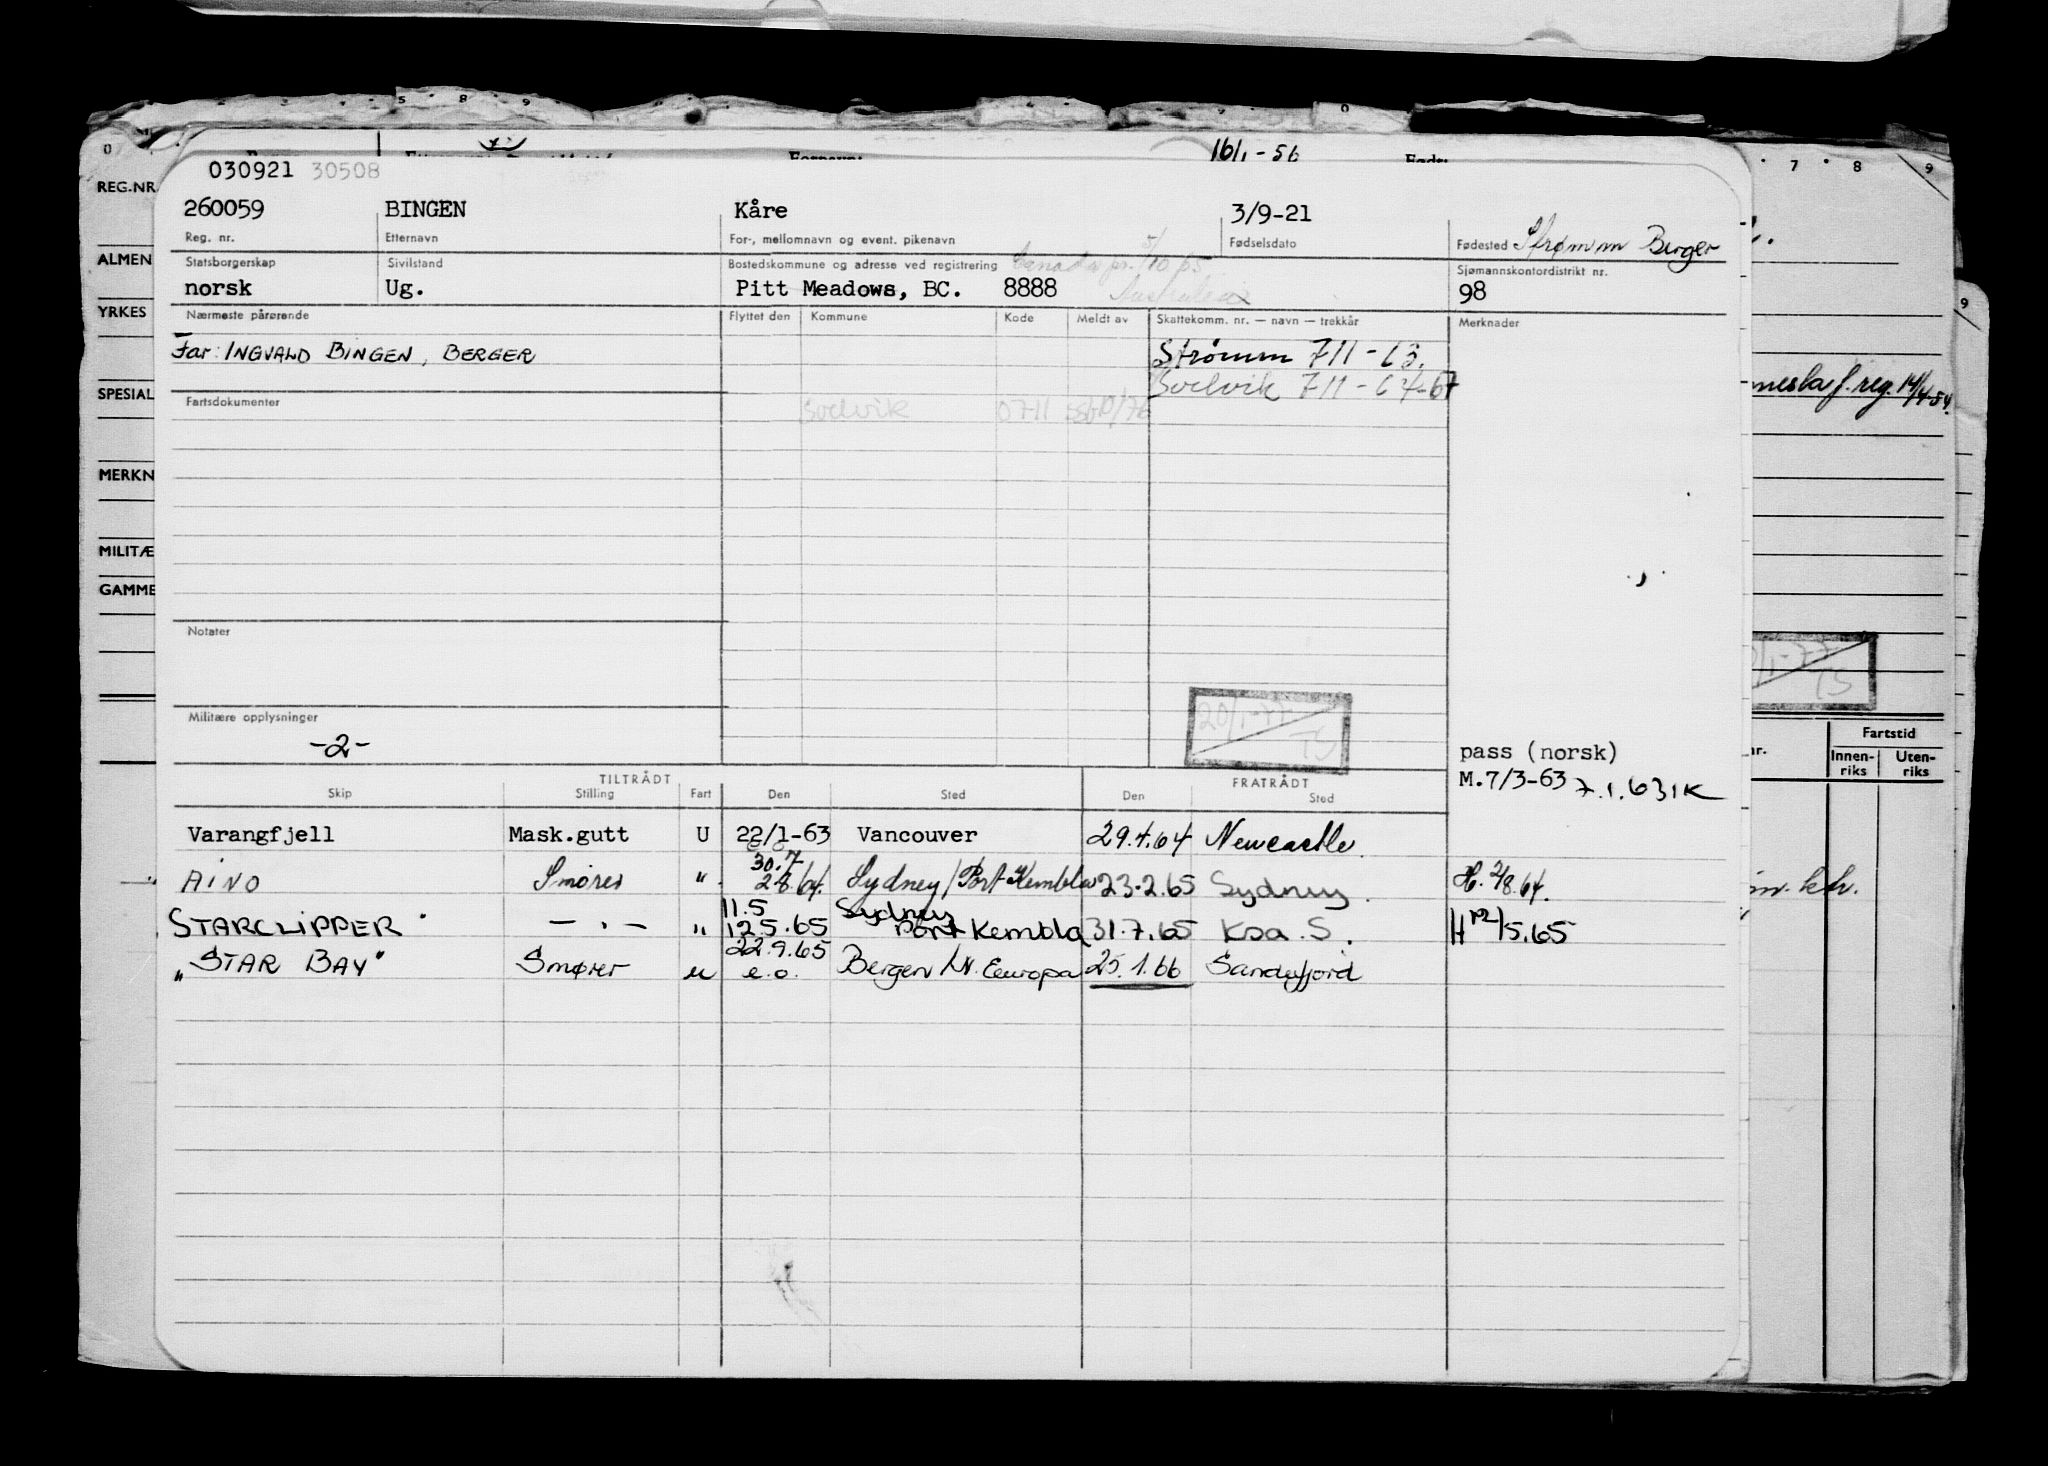 5 8 9
0
16/1-56
7 8 9
030921 30508
REG.NR.
260059 BINGEN Kåre 3/9-21
Reg. nr. Etternavn For-, mellomnavn og event. pikenavn Fødselsdato Fødested Strømm Berger
ALMEN
Statsborgerskap Sivilstand Bostedskommune og adresse ved registrering Canada pr. 5/10 65 Sjømannskontordistrikt nr.
norsk Ug. Pitt Meadows, BC. 8888 Australia 98
YRKES
Nærmeste pårørende Flyttet den Kommune Kode Meldt av Skattekomm. nr. — navn — trekkår Merknader
Far: INGVALD BINGEN, BERGER Strømm 711-63.
Svelvik 711-64-67
f. reg. 14/4-54.
SPESIAL
Fartsdokumenter Svelvik 0711
MERKN
MILITÆ
GAMME
Notater
20/1-77
TS
Militære opplysninger
-2-
pass (norsk)
M.7/3-63 7.1.631K
Fartstid
Innen-riks Uten-riks
TILTRÅDT FRATRÅDT
Skip Stilling Fart Den Sted Den Sted
Varangfjell Mask.gutt U 22/1-63 Vancouver 29.4.64 Newcastle.
30.7
AINO Smører " 2.8.64. Sydney/Port Kembla 23.2.65 Sydney. H. 2/8.64.
11.5 Sydney
STARCLIPPER -"- " 12.5.65 Port Kembla 31.7.65 Koa.S. H 12/5.65
22.9.65
"STAR BAY" Smører u e.o. Bergen Europa 25.1.66 Sandefjord